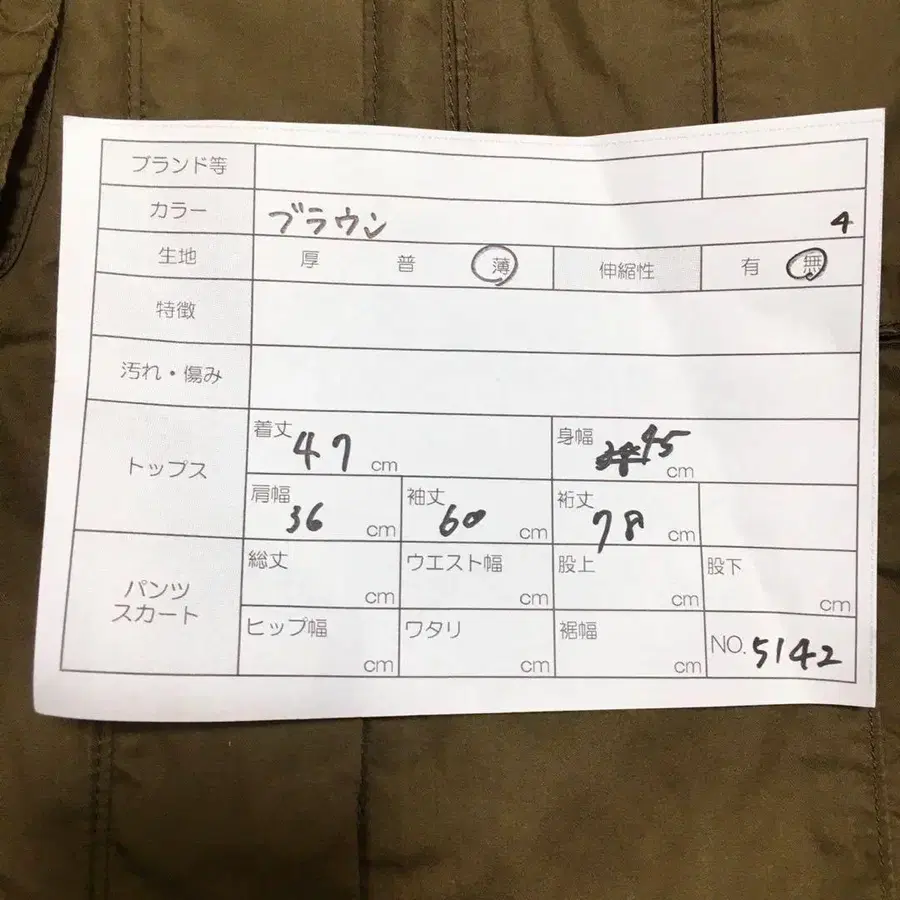 ブランド等
カラー ブラウン 4
生地 厚 普 薄 伸縮性 有 無
特徴
汚れ・傷み
トップス
着丈 47 cm 身幅 45 cm
肩幅 36 cm 袖丈 60 cm 裄丈 78 cm
パンツ
スカート
総丈 cm ウエスト幅 cm 股上 cm 股下 cm
ヒップ幅 cm ワタリ cm 裾幅 cm NO. 5142